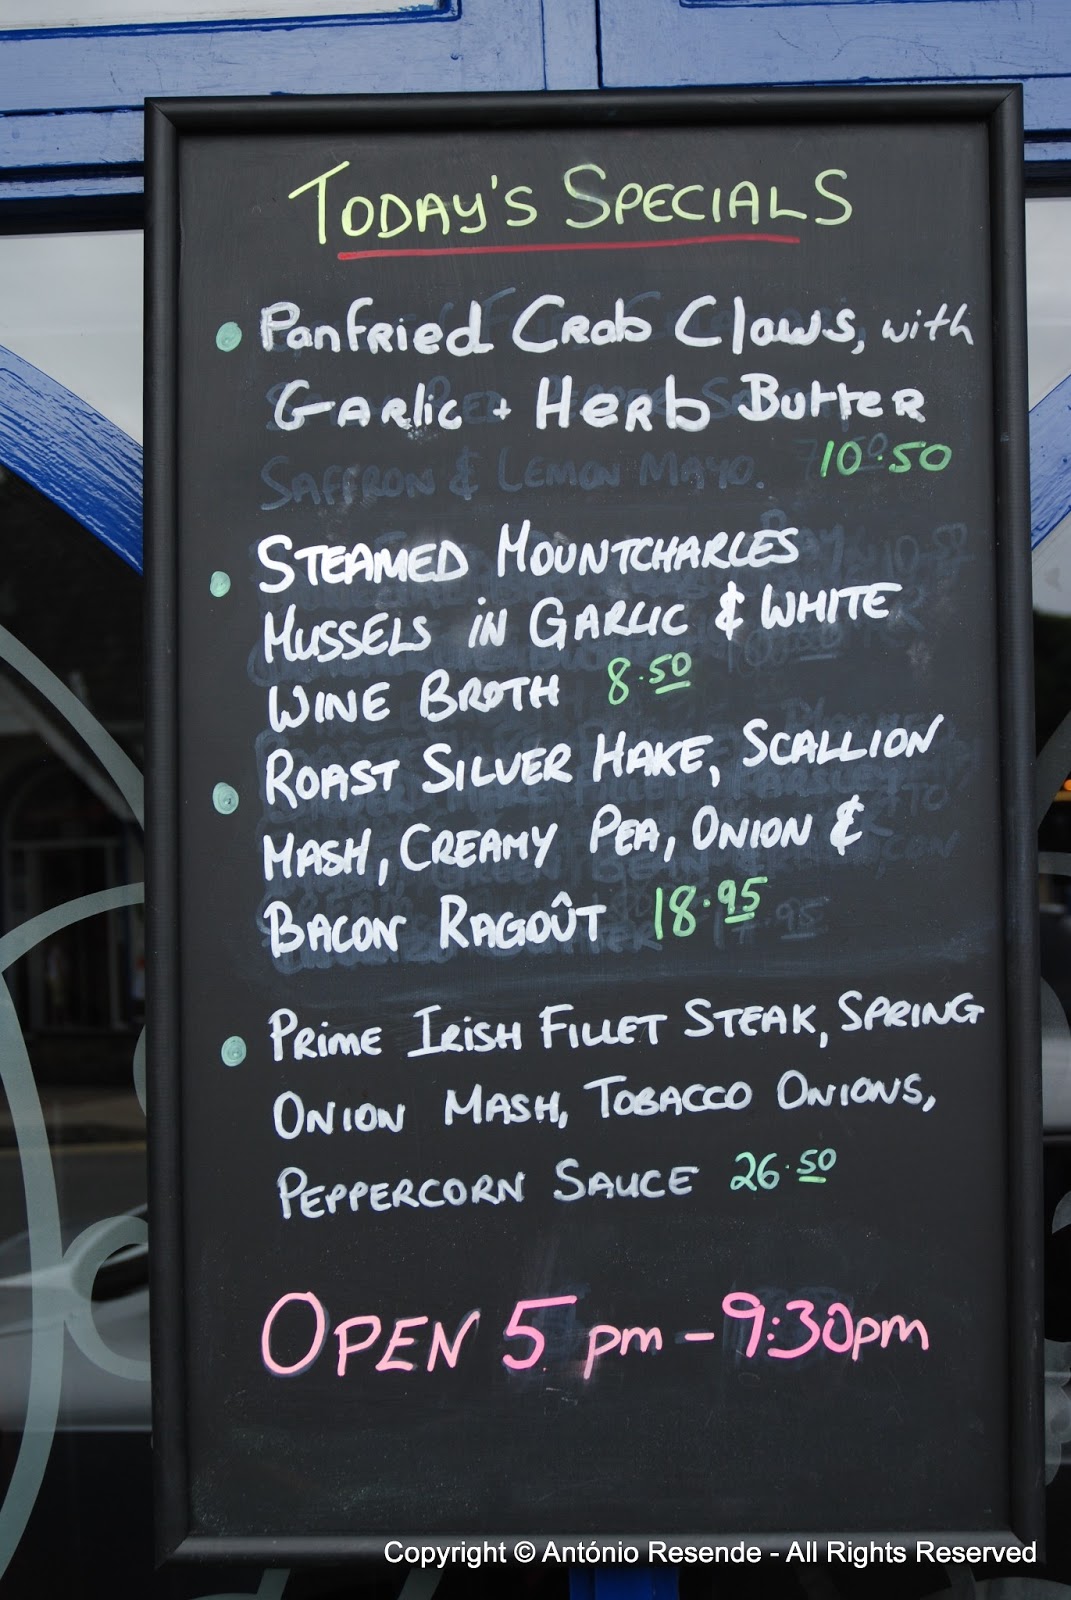 TODAY'S SPECIALS
Panfried Crab Claws, with
Garlic + Herb Butter
SAFFRON & LEMON MAYO. 10.50
STEAMED MOUNTCHARLES
MUSSELS IN GARLIC & WHITE
WINE BROTH 8.50
ROAST SILVER HAKE, SCALLION
MASH, CREAMY PEA, ONION &
BACON RAGOÛT 18.95
PRIME IRISH FILLET STEAK, SPRING
ONION MASH, TOBACCO ONIONS,
PEPPERCORN SAUCE 26.50
OPEN 5 pm - 9:30pm
Copyright © António Resende - All Rights Reserved